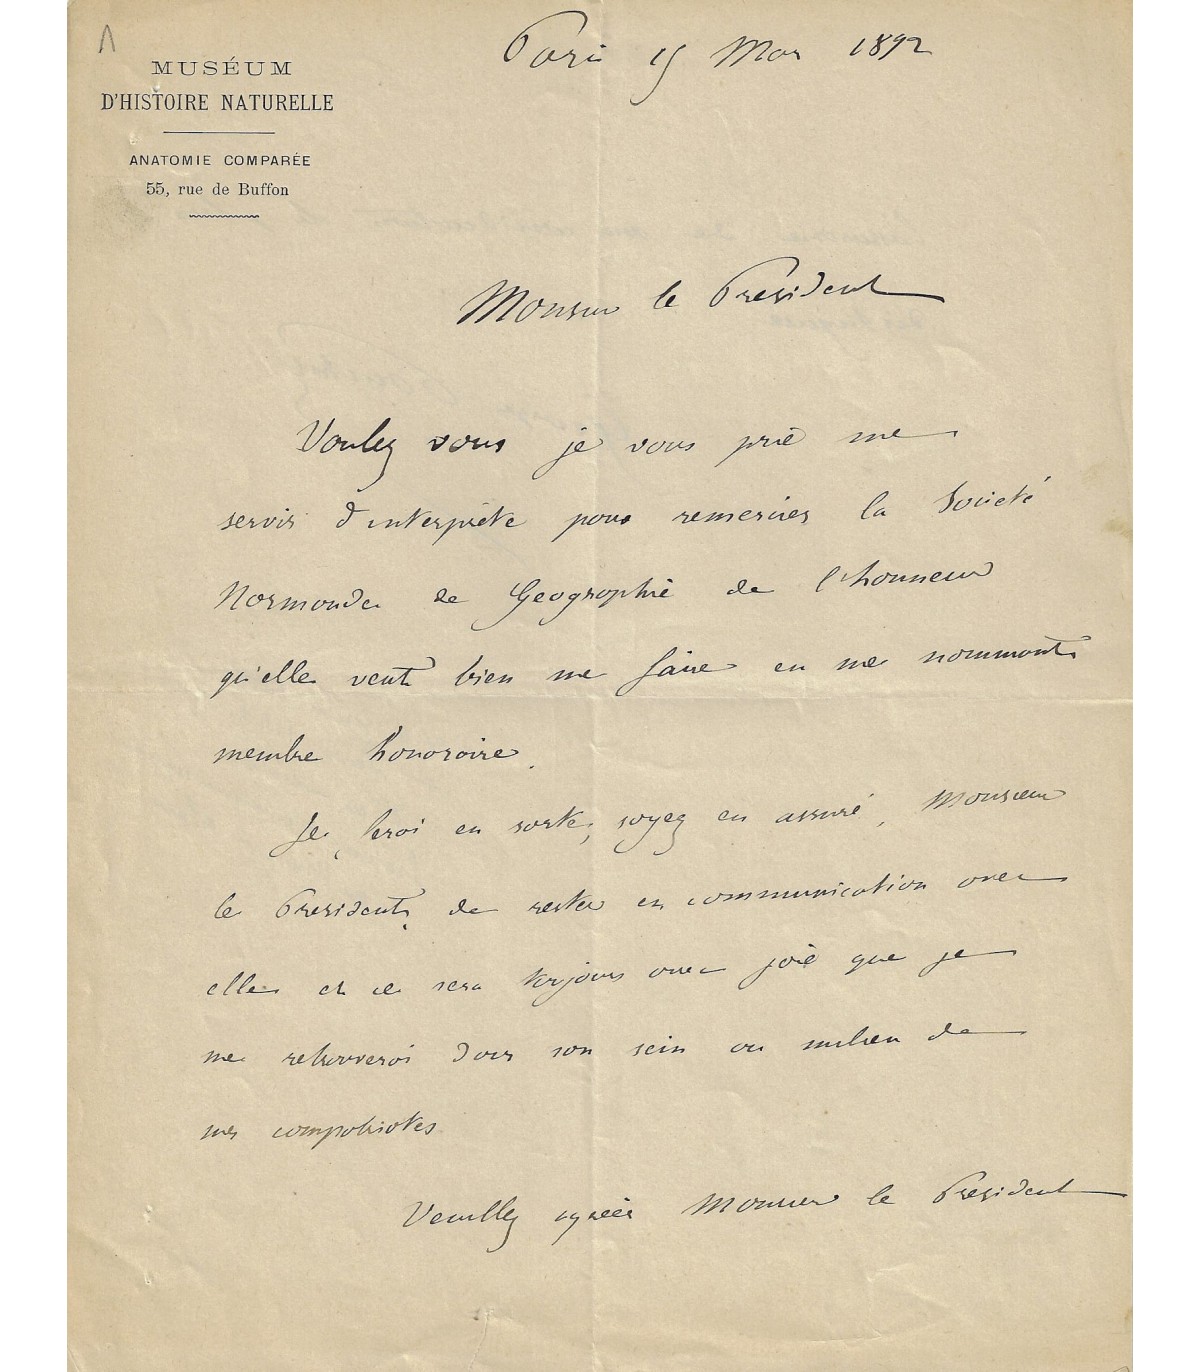 MUSÉUM
D'HISTOIRE NATURELLE
ANATOMIE COMPARÉE
55, rue de Buffon
Paris 15 Mars 1892
Monsieur le President
Voulez vous je vous prie me
servir d'interprète pour remercier la Société
Normande de Geographie de l'honneur
qu'elle veut bien me faire en me nommant
membre honoraire.
Je ferai en sorte, soyez en assuré, Monsieur
le President, de rester en communication avec
elle et ce sera toujours avec joie que je
me retrouverai dans son sein au milieu de
mes compatriotes
Veuillez agréer Monsieur le President